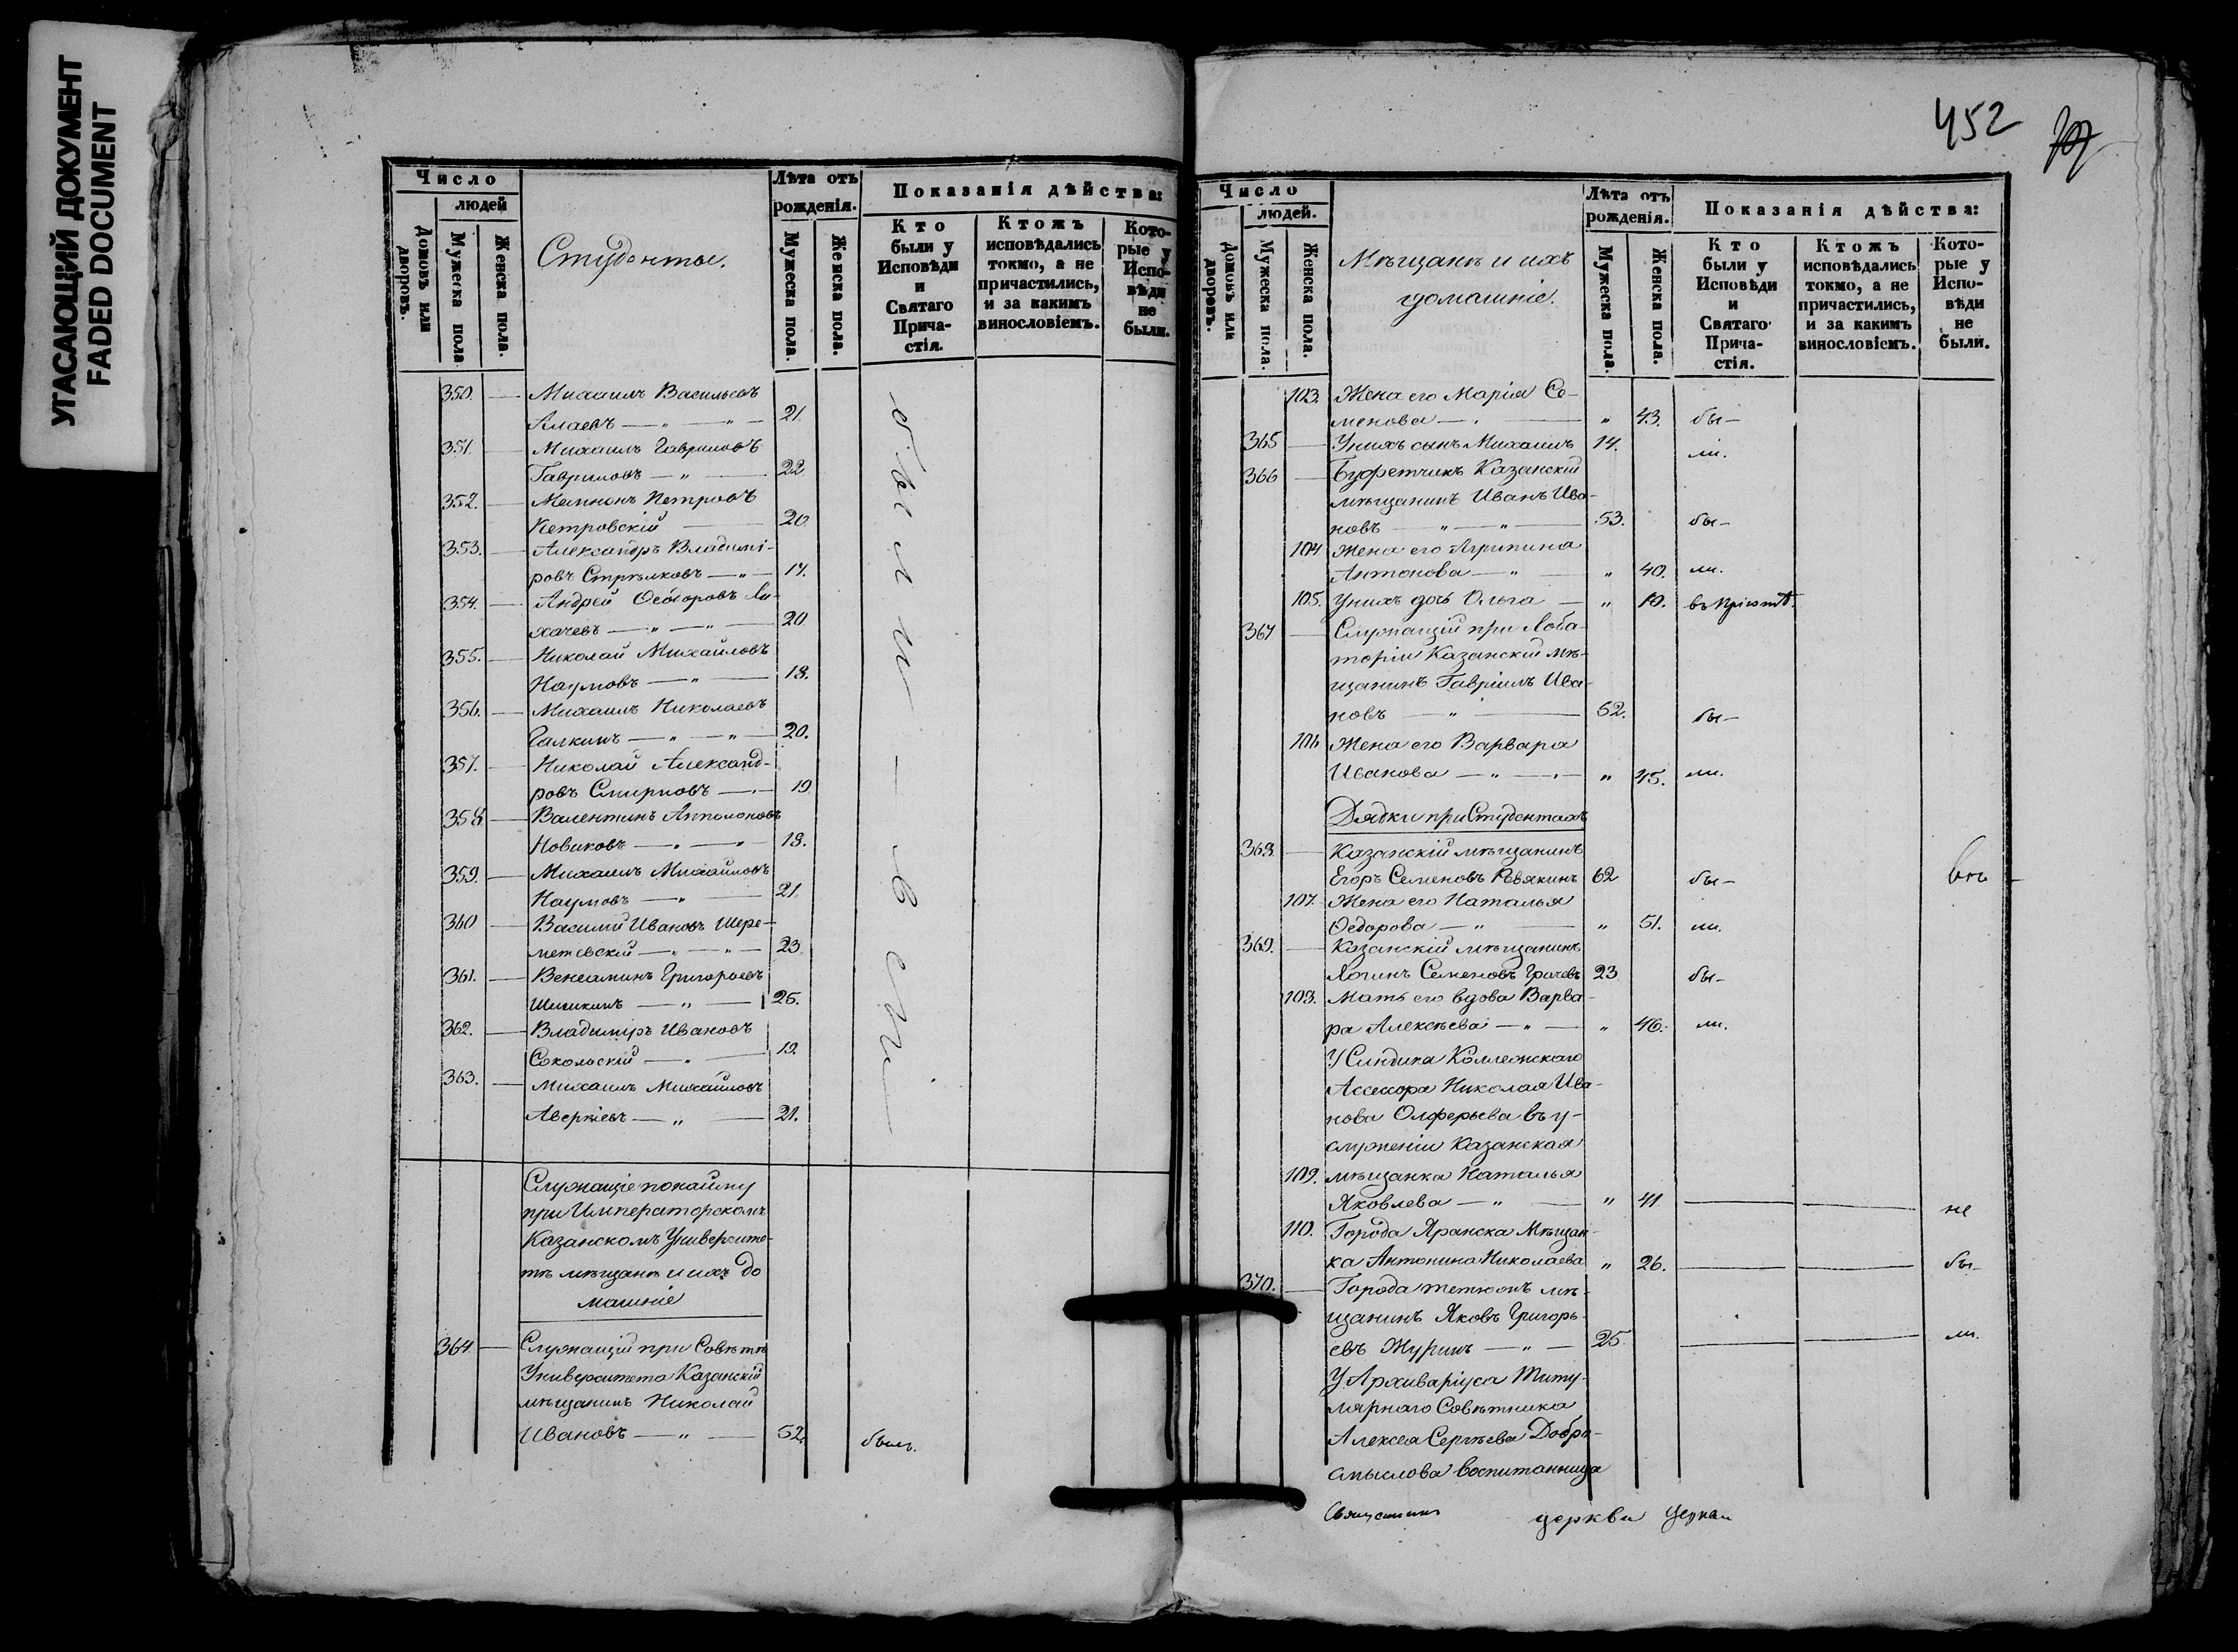 УГАСАЮЩИЙ ДОКУМЕНТ
FADED DOCUMENT
Число
людей
Домовъ или дворовъ.
Мужеска пола
Женска пола.
Студенты.
Лѣта отъ рожденія.
Мужеска пола.
Женска пола.
Показанія дѣйства:
Кто были у Исповѣди и Святаго Прича-стія.
Ктожъ исповѣдались токмо, а не причастились, и за какимъ винословіемъ.
Кото-рые у Испо-вѣди не были.
350. Михаилъ Васильевъ
Алаевъ — „ — „ — 21.
351. Михаилъ Гавриловъ
Гавриловъ — „ — 22
352. Мемнонъ Петровъ
Петровскій — 20
353. Александръ Владимі-
ровъ Стрѣлковъ — „ — 17.
354. Андрей Ѳедоровъ Ли-
хачевъ — „ — „ — 20
355. Николай Михайловъ
Наумовъ — „ — 18.
356. Михаилъ Николаевъ
Галкинъ — „ — „ — 20.
357. Николай Александ-
ровъ Смирновъ — „ — 19
358. Валентинъ Апполоновъ
Новиковъ — „ — „ — 18.
359. Михаилъ Михайловъ
Наумовъ — „ — 21
360 Василій Ивановъ Шере-
метевскій — „ — „ — 23
361. Веніаминъ Григорьевъ
Шишкинъ — „ — 25.
362. Владиміръ Ивановъ
Сокольскій — „ — 19.
363. Михаилъ Михайловъ
Аверкіевъ — „ — 21.
были — всѣ —
Служащіе по найму
при Императорскомъ
Казанскомъ Университе-
тѣ мѣщане и ихъ до
машніе
364. Служащій при Совѣтѣ
Университета Казанскій
мѣщанинъ Николай
Ивановъ — „ — 52. былъ.
452
Число
людей.
Домовъ или дворовъ.
Мужеска пола.
Женска пола.
Мѣщане и ихъ
домашніе.
Лѣта отъ рожденія.
Мужеска пола.
Женска пола.
Показанія дѣйства:
Кто были у Исповѣди и Святаго Прича-стія.
Ктожъ исповѣдались токмо, а не причастились, и за какимъ винословіемъ.
Кото-рые у Испо-вѣди не были.
103. Жена его Марія Се-
менова — „ — „ 43. бы-
365 Унихъ сынъ Михаилъ 14. ли.
366 Буфетчикъ Казанскій
мѣщанинъ Иванъ Ива-
новъ — „ — „ — 53. бы-
104 Жена его Агрипина
Антонова — „ — „ 40. ли.
105. Унихъ дочь Ольга — „ 10. въ Пріютѣ.
367 Служащій при Лоба-
торіи Казанскій мѣ-
щанинъ Гавріилъ Ива-
новъ — „ — 52. бы-
106 Жена его Варвара
Иванова — „ — „ — „ 45. ли.
Дядки при Студентахъ
368 Казанскій мѣщанинъ
Егоръ Семеновъ Ревякинъ 62 бы-
107. Жена его Наталья
Ѳедорова — „ — „ 51. ли.
369. Казанскій мѣщанинъ
Логинъ Семеновъ Грачевъ 23 бы-
108. Мать его вдова Варва-
ра Алексѣева — „ — „ 46. ли.
У Синдика Коллежскаго
Ассесора Николая Ива-
нова Олферьева въ у-
служеніи Казанская
109. мѣщанка Наталья
Яковлева — „ — „ 41 не
110. Города Яранска Мѣщан-
ка Антонина Николаева „ 26. бы-
370. Города Тетюшъ мѣ-
щанинъ Яковъ Григорь-
евъ Журинъ — „ — 25. ли.
У Архиваріуса Титу-
лярнаго Совѣтника
Алексѣя Сергѣева Добро-
смыслова воспитанница
Священникъ церкви